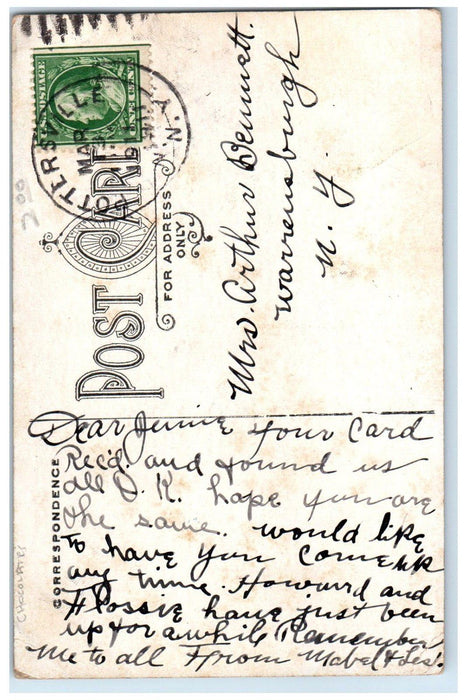 POTTERSVILLE
N.Y.
MAR
ONE CENT
POST CARD
FOR ADDRESS
ONLY
Mrs. Arthur Bennett.
Warrensburgh
N. Y.
CORRESPONDENCE
Dear Jennie your card
Rec'd. and found us
all O.K. hope you are
the same. would like
to have you come up
any time. Howard and
Flossie have just been
up for a while Remember
me to all From Mabel & Les.